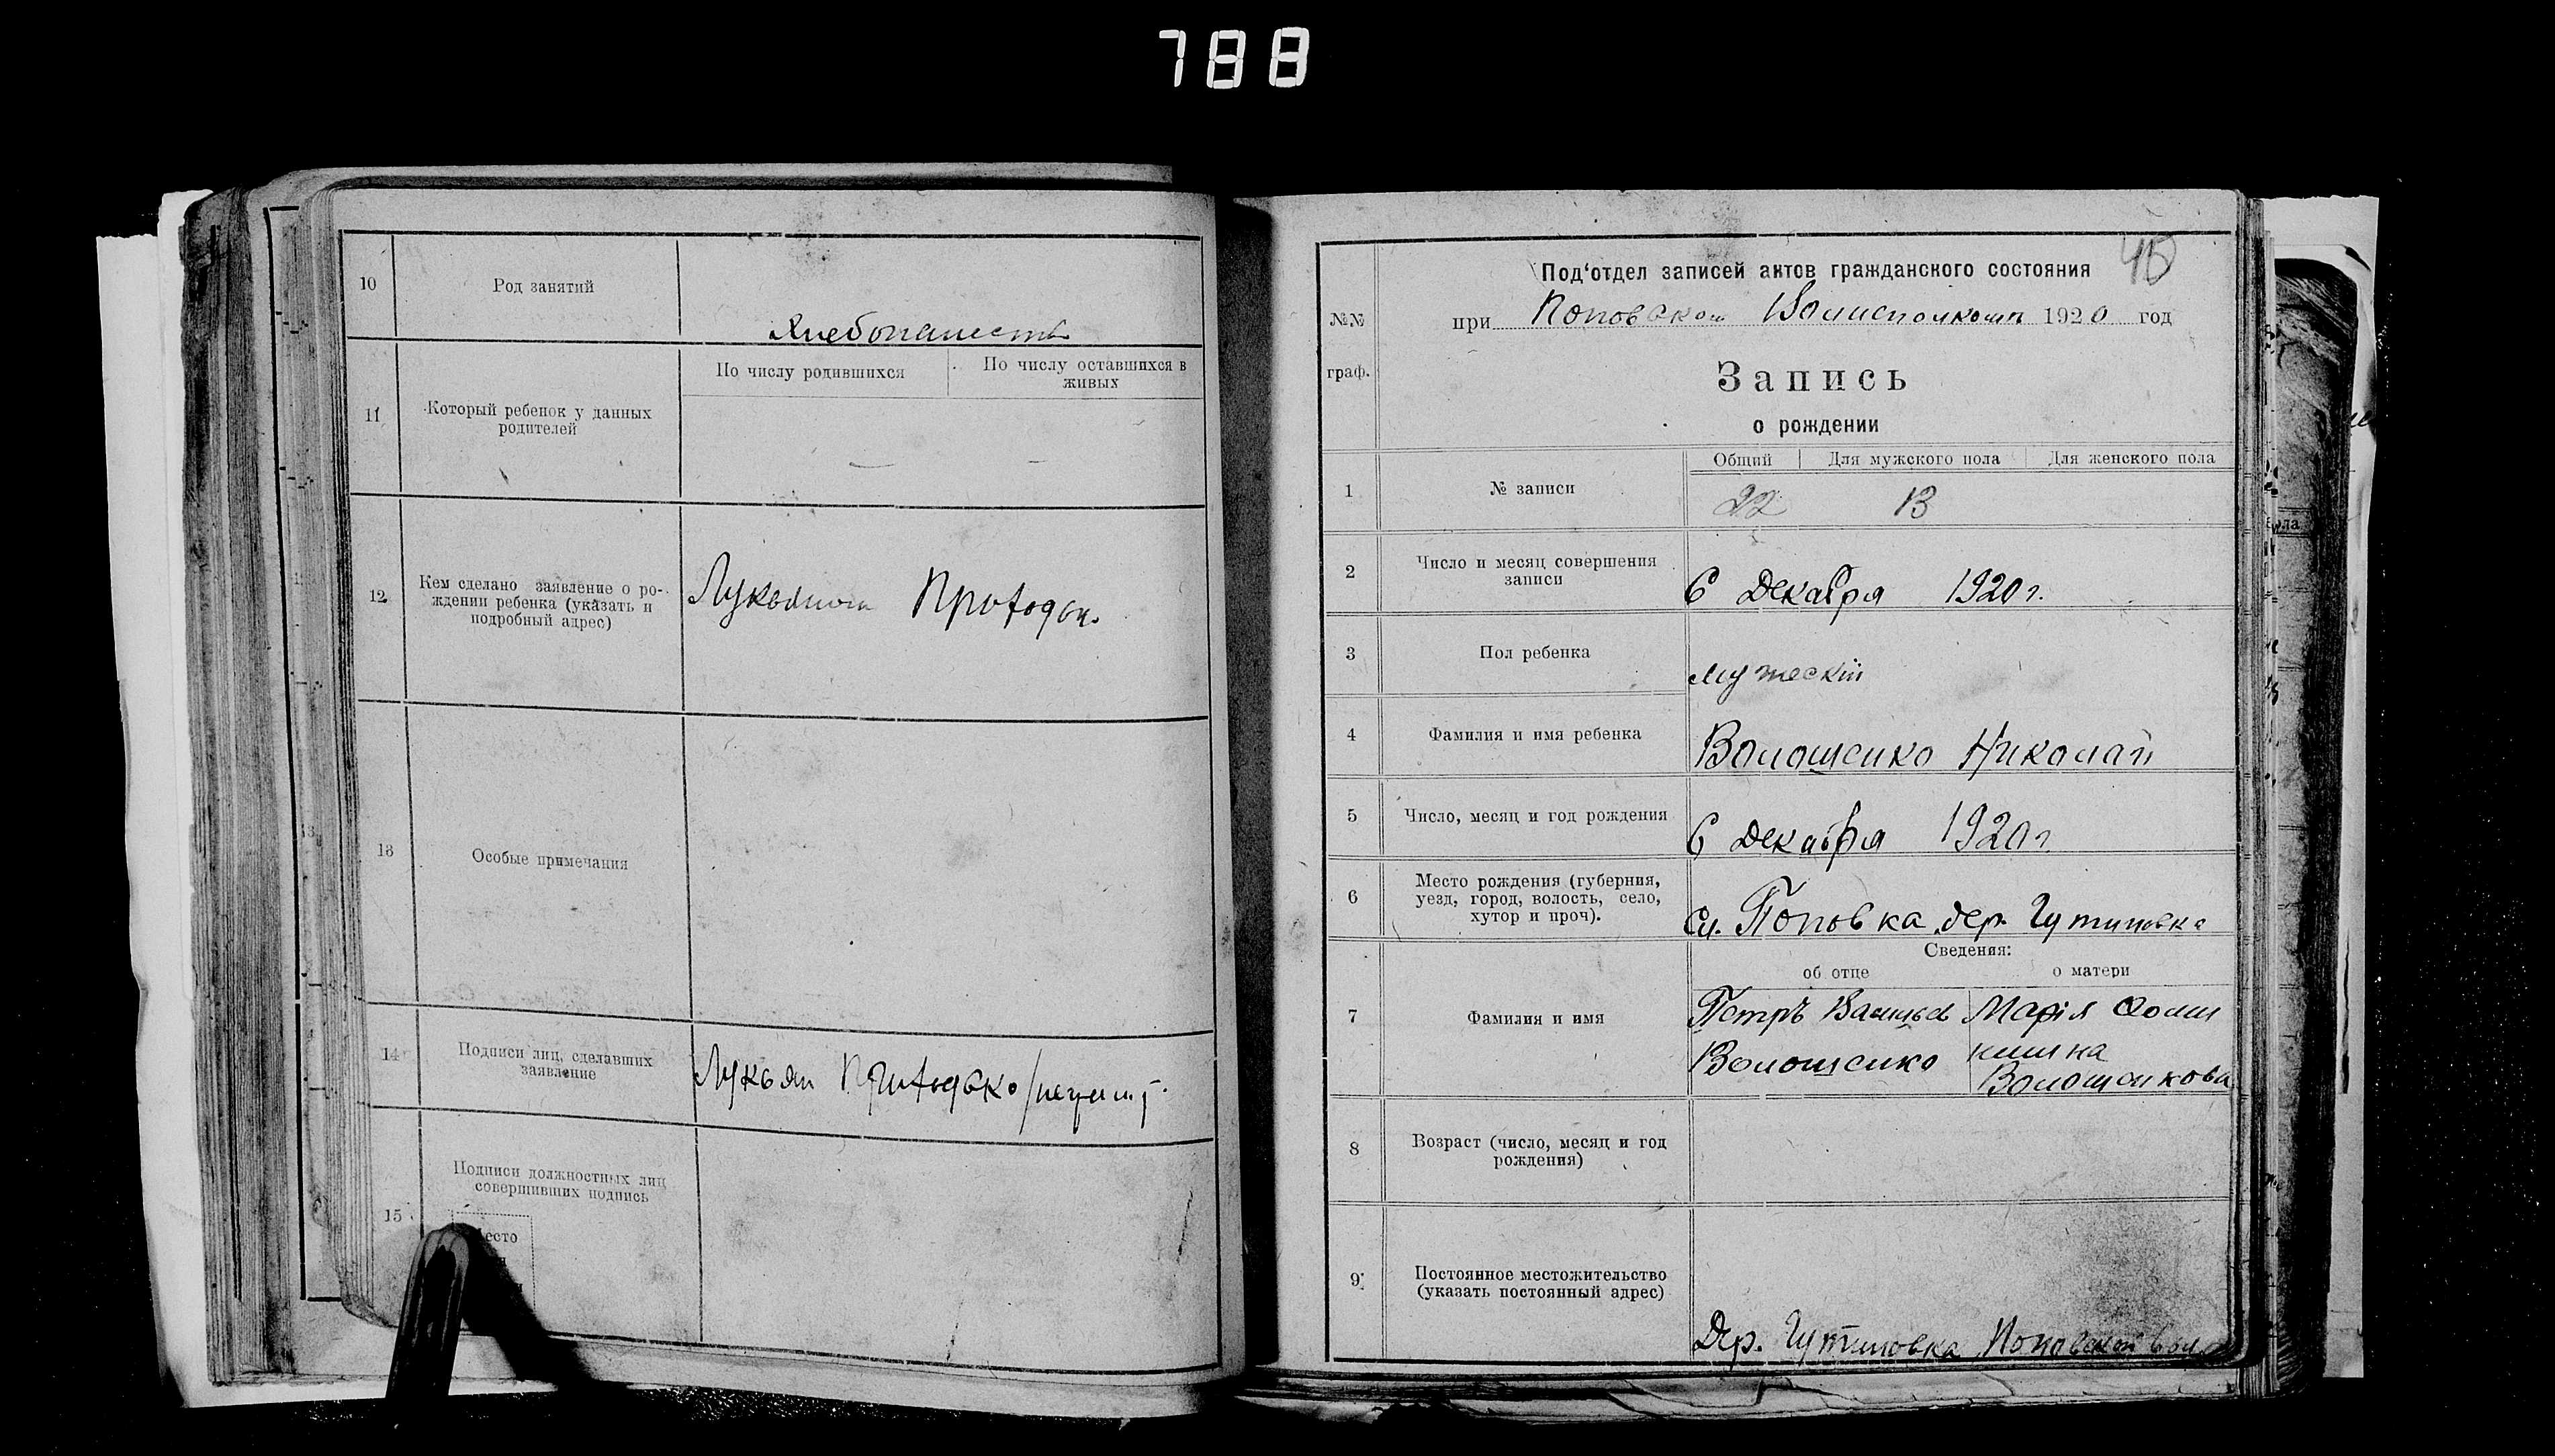 788
10
Род занятий
Хлебопашеств
11
Который ребенок у данных
родителей
По числу родившихся
По числу оставшихся в
живых
—
—
12
Кем сделано заявление о ро-
ждении ребенка (указать и
подробный адрес)
13
Особые примечания
14
Подписи лиц, сделавших
заявление
Лукьян
15
Подписи должностных лиц
совершивших подпись
№№
граф.
Под‘отдел записей актов гражданского состояния
при Поповском Волисполкоме 1920 год
Запись
о рождении
1
№ записи
Общий
Для мужского пола
Для женского пола
22
13
2
Число и месяц совершения
записи
6 Декабря 1920 г.
3
Пол ребенка
мужескій
4
Фамилия и имя ребенка
Волошенко Николай
5
Число, месяц и год рождения
6 Декабря 1920 г.
6
Место рождения (губерния,
уезд, город, волость, село,
хутор и проч).
сл. Поповка дер.
Сведения:
об отце
о матери
7
Фамилия и имя
Петръ Васильев
Волошенко
Марія Фоми
нишна
Волошенкова
8
Возраст (число, месяц и год
рождения)
9
Постоянное местожительство
(указать постоянный адрес)
Дер. Поповской вол